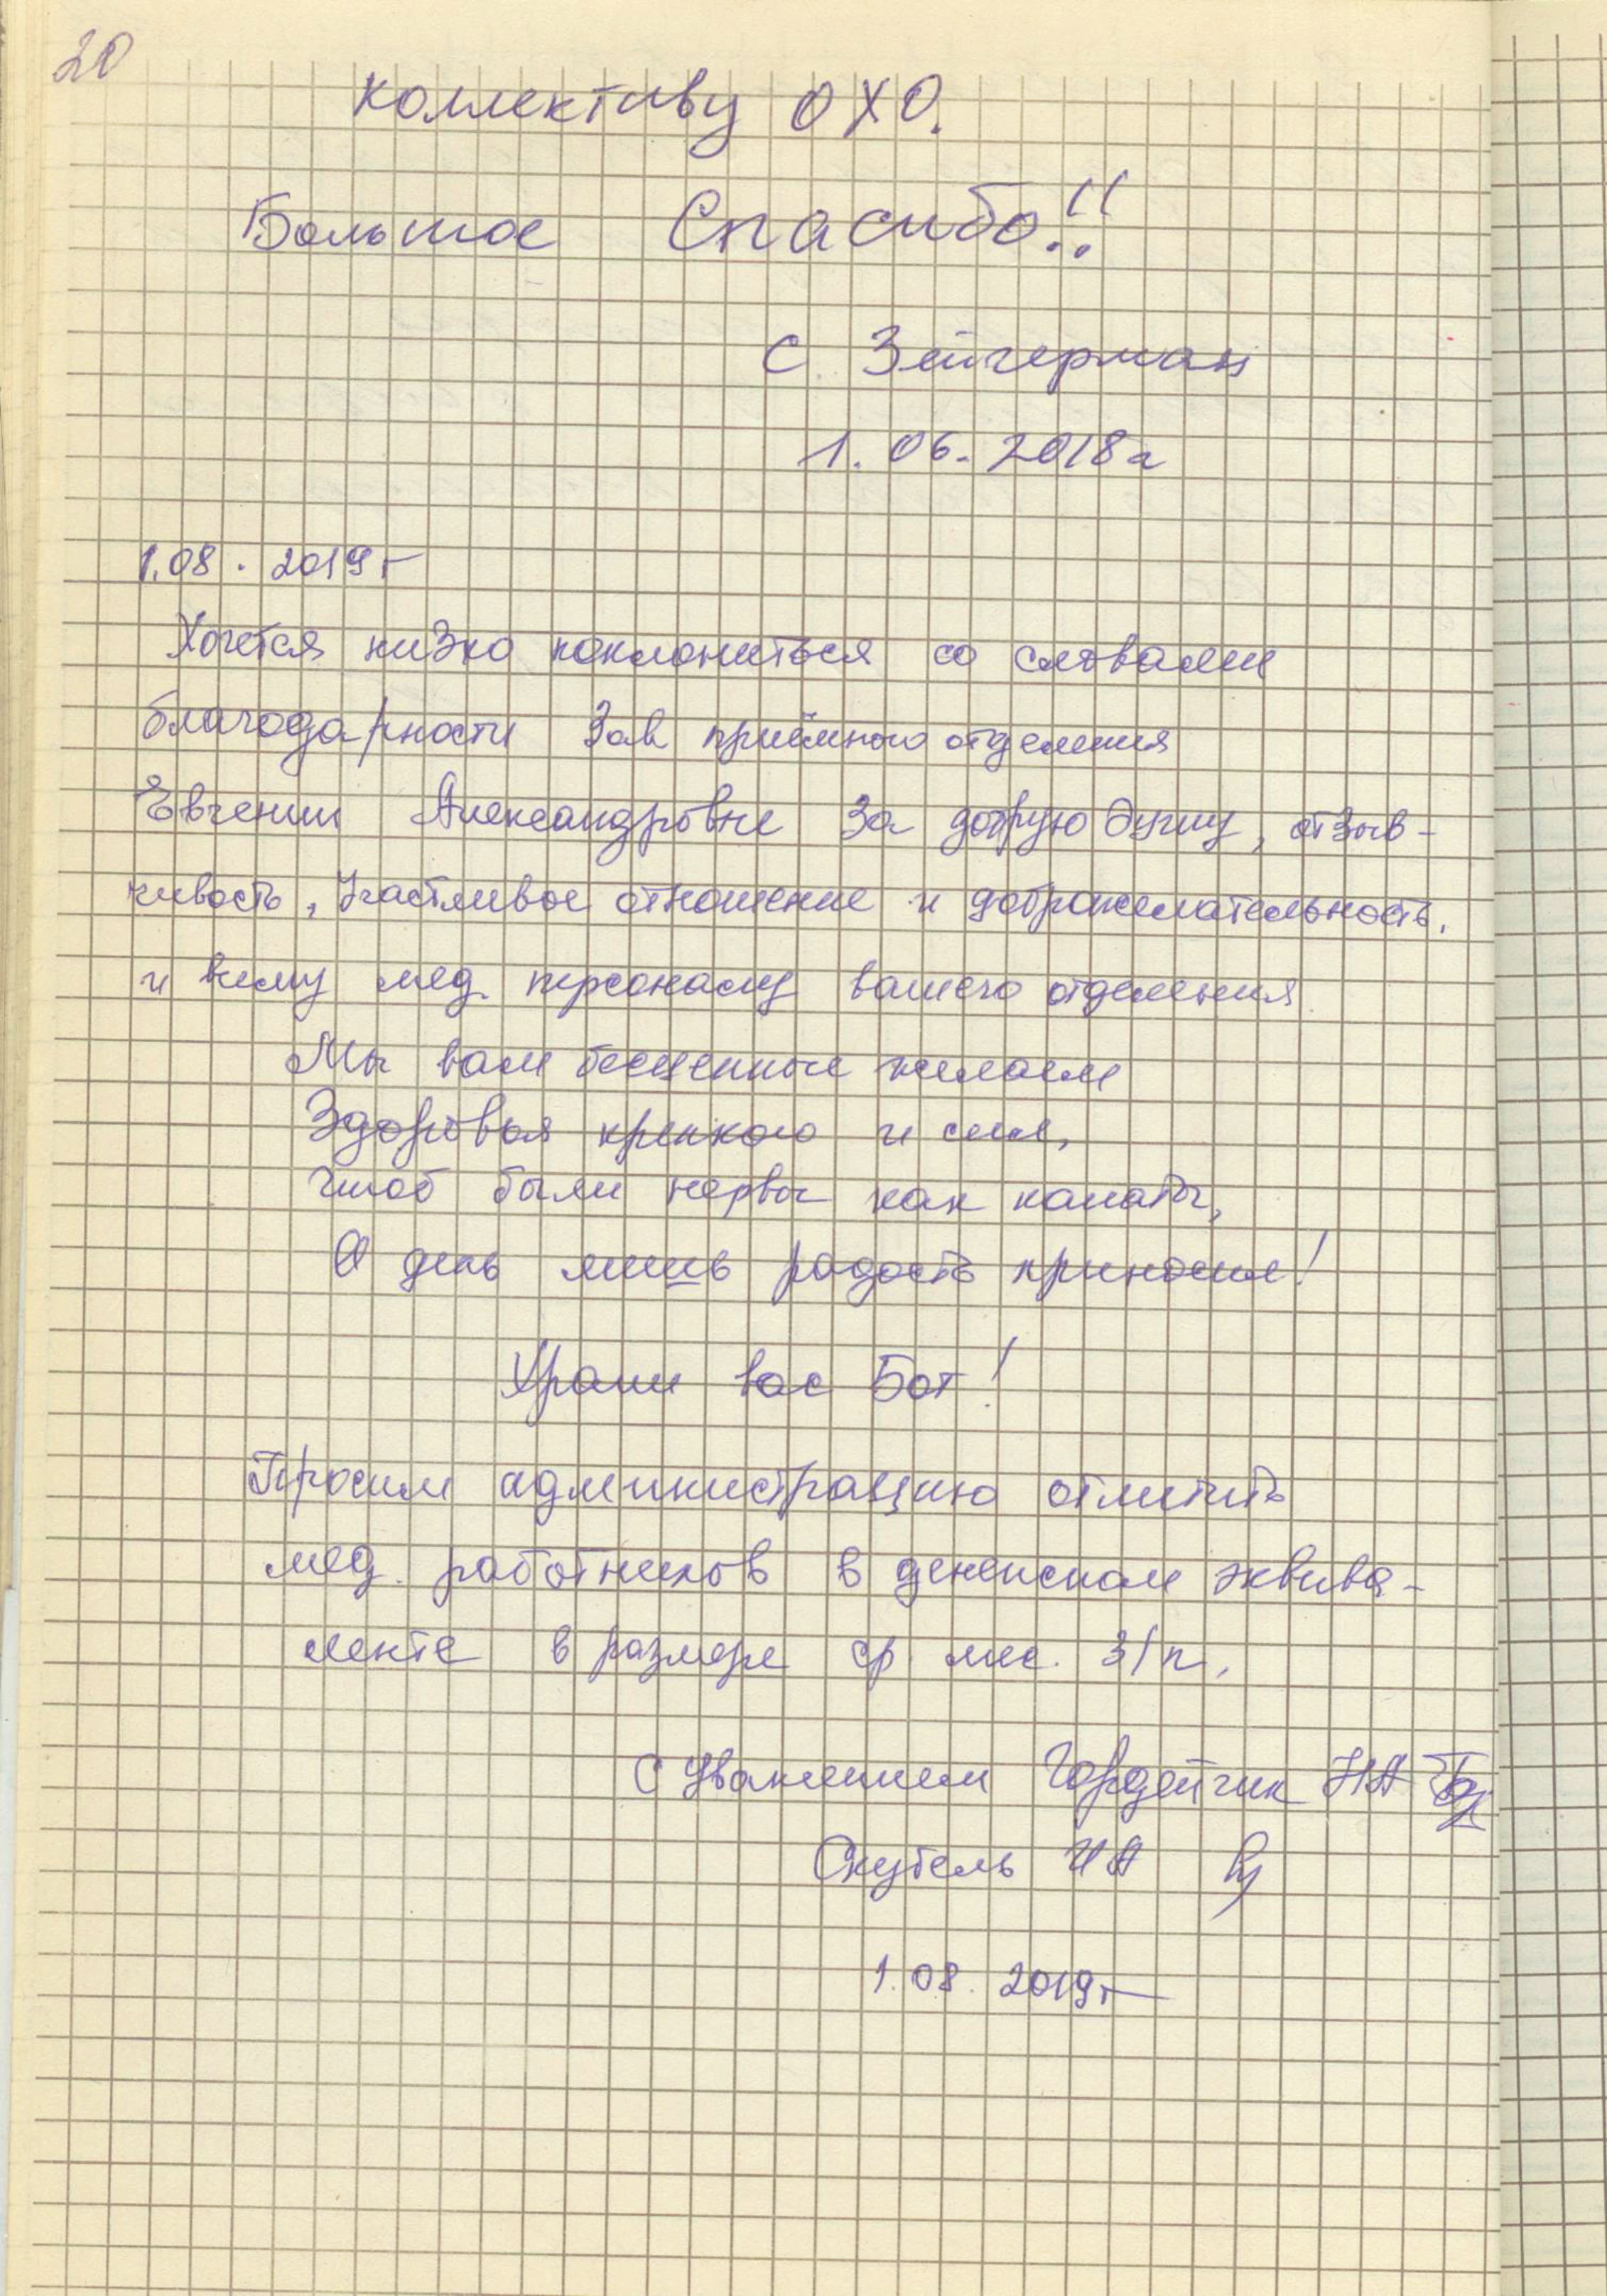 20
Коллективу ОХО.
Большое Спасибо!!
С. Зейгерман
1.06.2018г
1.08.2019г
Хочется низко поклониться со словами
благодарности Зав приёмного отделения
Евгении Александровне за добрую душу, отзыв-
чивость, участливое отношение и доброжелательность.
и всему мед. персоналу вашего отделения
Мы вам бесценные желаем
Здоровья крепкого и сил,
Чтоб были нервы как канаты,
А день лишь радость приносил!
Храни вас Бог!
Просим администрацию отметить
мед. работников в денежном эквива-
ленте в размере ср. мес. з/п.
С уважением Гордейчик НА
Скутель ИА
1.08.2019г